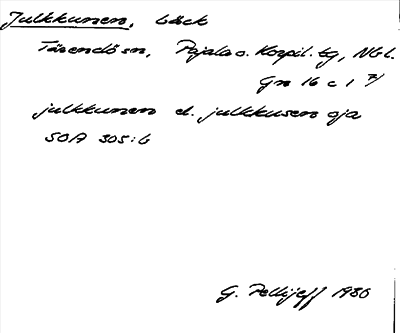 Julkkunen, bäck
Tärendö sn, Pajala o. Korpil. tg, Nbl.
Gn 16 c 1 7/
julkkunen el. julkkusen oja
SOA 305:6
G. Pellijeff 1986